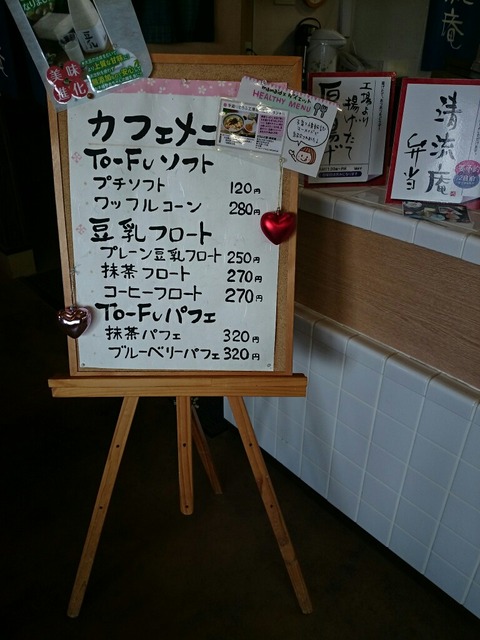 美味
進化
豆乳
カフェメニ
HEALTHY MENU
To-Fuソフト
プチソフト 120円
ワッフルコーン 280円
豆乳フロート
プレーン豆乳フロート 250円
抹茶フロート 270円
コーヒーフロート 270円
To-Fuパフェ
抹茶パフェ 320円
ブルーベリーパフェ 320円
工場より
揚げた
清流庵
弁当
庵